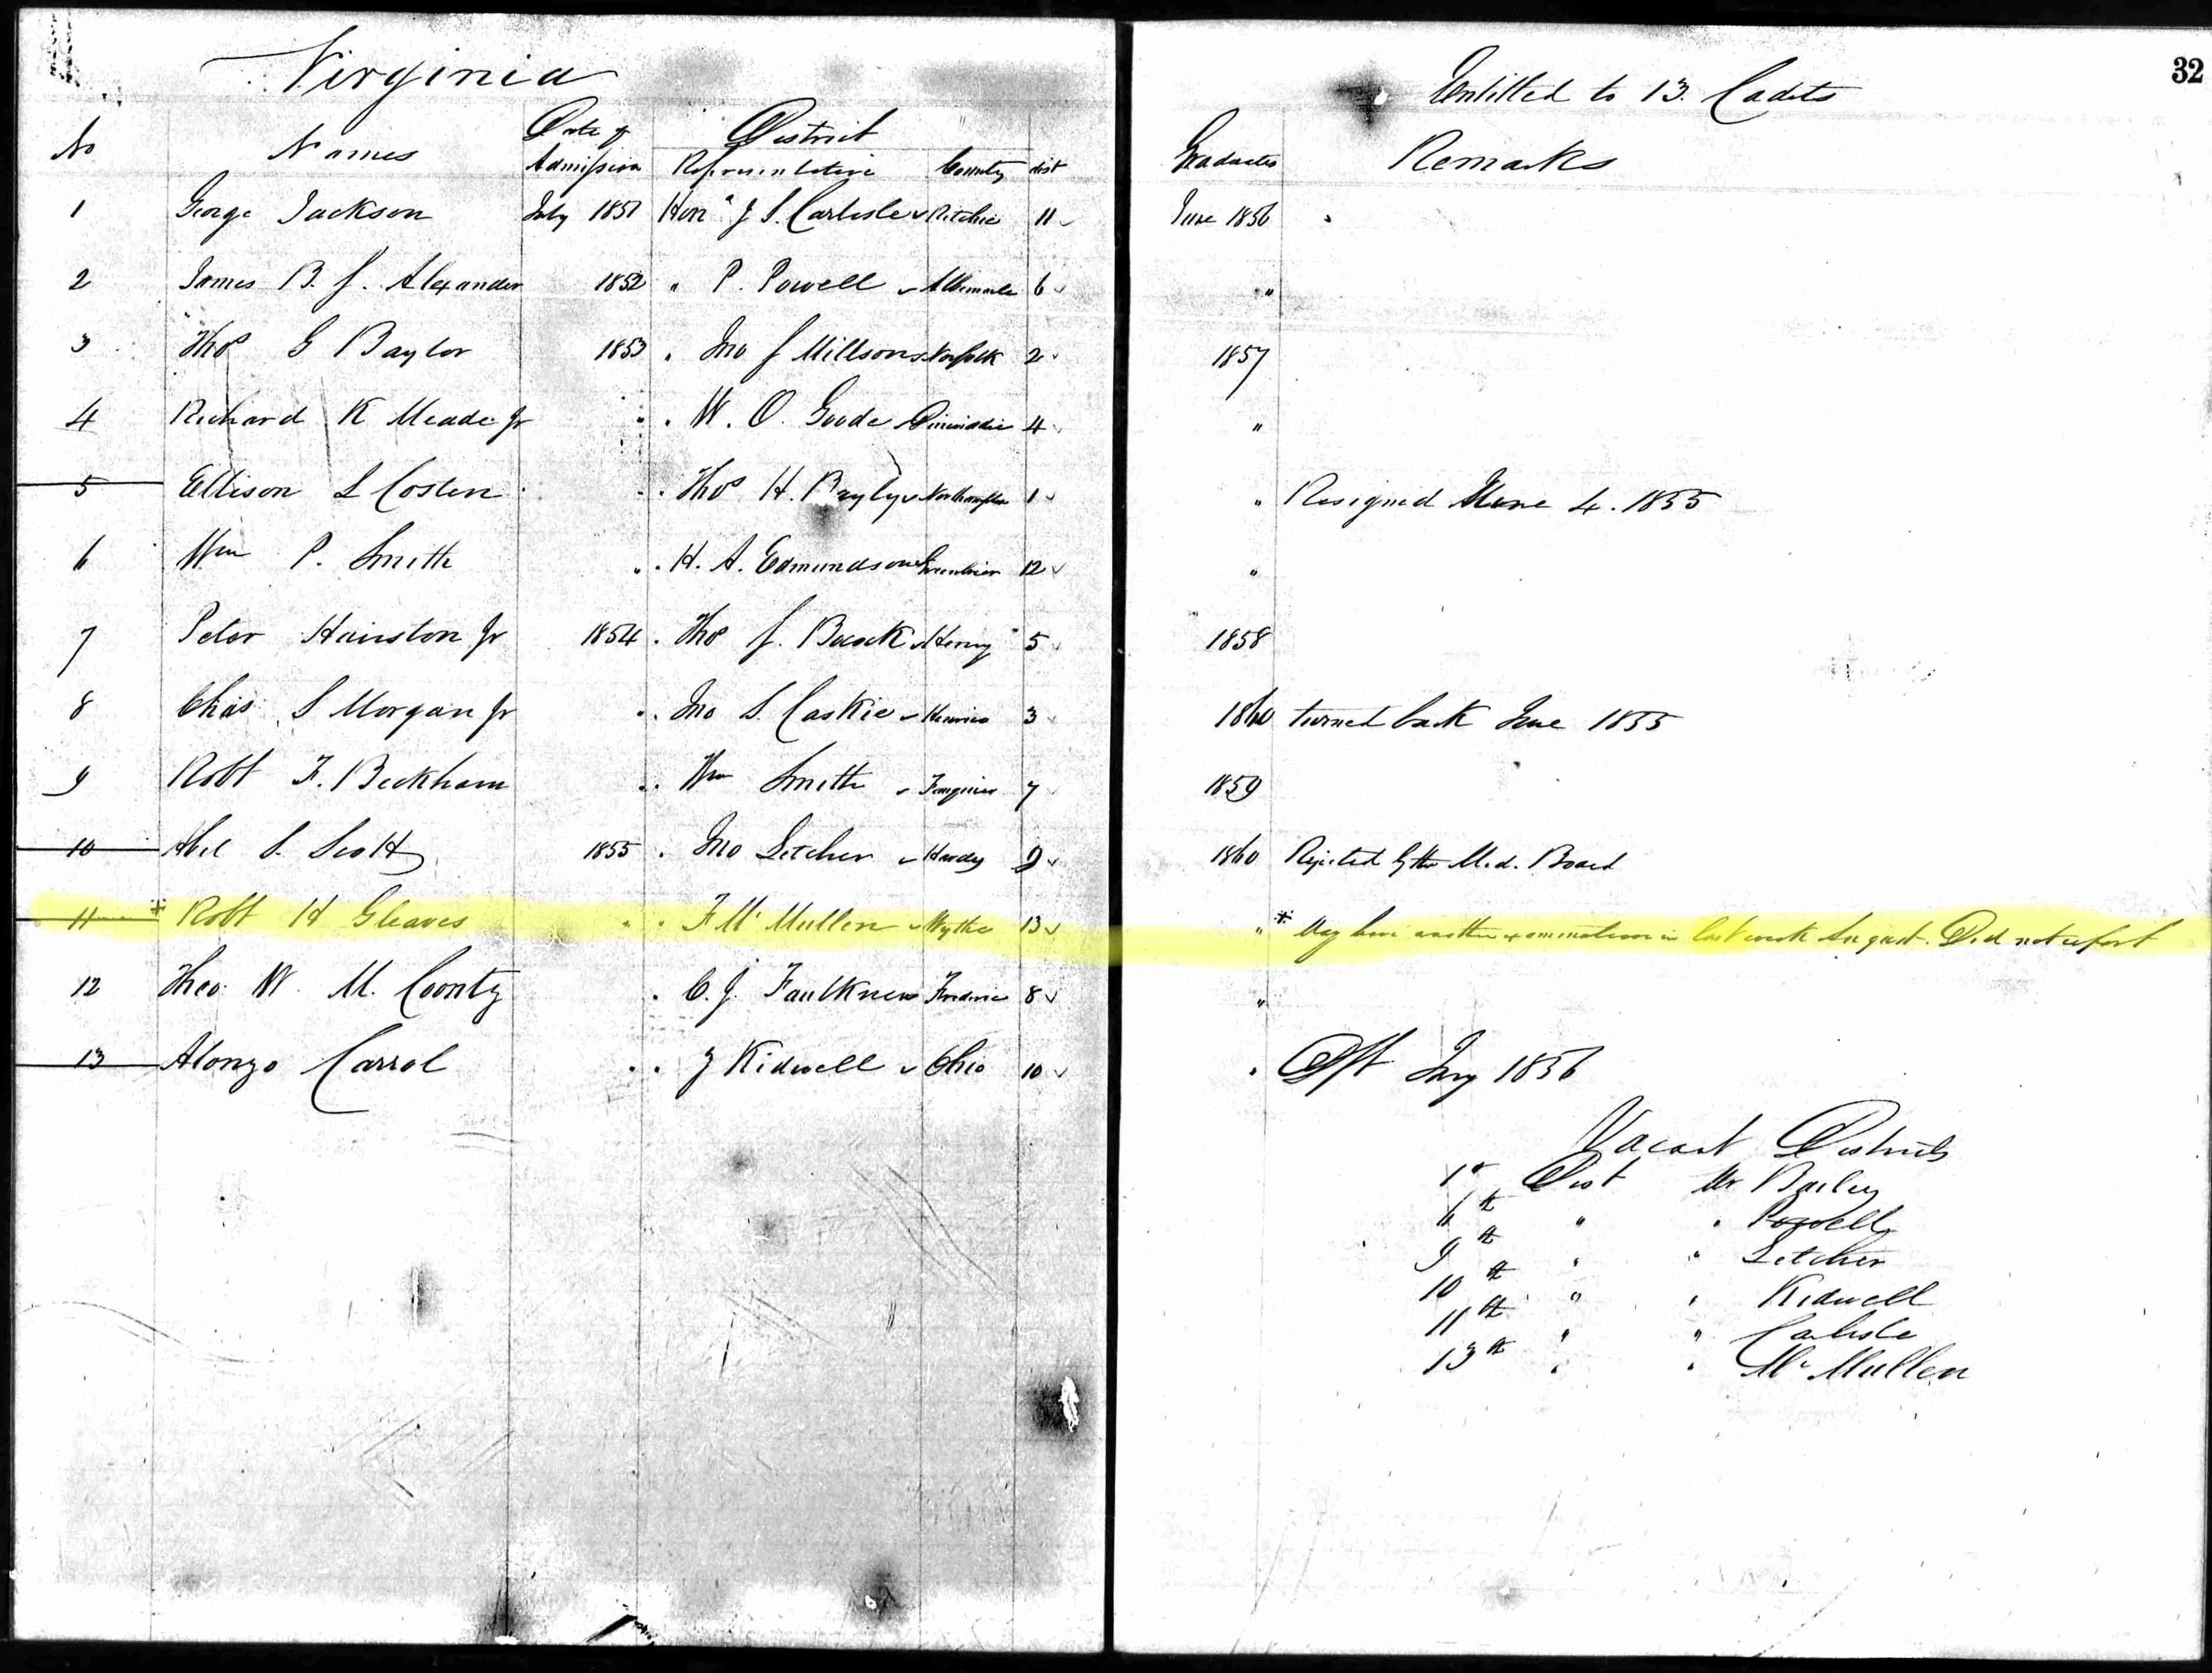 Virginia
Entitled to 13. Cadets
32
No Names Date of Admission District Representative County dist Graduates Remarks
1 George Jackson July 1851 Hon J S. Carlisle Ritchie 11 June 1856
2 James B. f. Alexander 1852 " P. Powell Albemarle 6 "
3 Thos G Baylor 1853 " Jno S Millson Norfolk 2 1857
4 Richard K Meade Jr " " W. O. Goode Dinwiddie 4 "
5 Ellison L Costin " " Thos H. Bayly Northampton 1 " Resigned June 4. 1855
6 Wm P. Smith " " H. A. Edmundson Greenbrier 12 "
7 Peter Hairston Jr 1854 " Tho S. Bocock Henry 5 1858
8 Chas S Morgan Jr " " Jno S. Caskie Henrico 3 1860 turned back June 1855
9 Robt F. Beckham " " Wm Smith Fauquier 7 1859
10 Abel S. Scott 1855 " Jno Letcher Hardy 9 1860 Rejected by the Med. Board
11 * Robt H Gleaves " " F Mc Mullen Wythe 13 " * May have another examination in last week August. Did not report
12 Theo W. M. Coontz " C. J. Faulkner Frederic 8 "
13 Alonzo Carrol " " Z Kidwell Ohio 10 " Dft Jany 1856
Vacant Districts
1st Dist Mr Bailey
6th " " Powell
9th " " Letcher
10th " " Kidwell
11th " " Carlisle
13th " " Mc Mullen